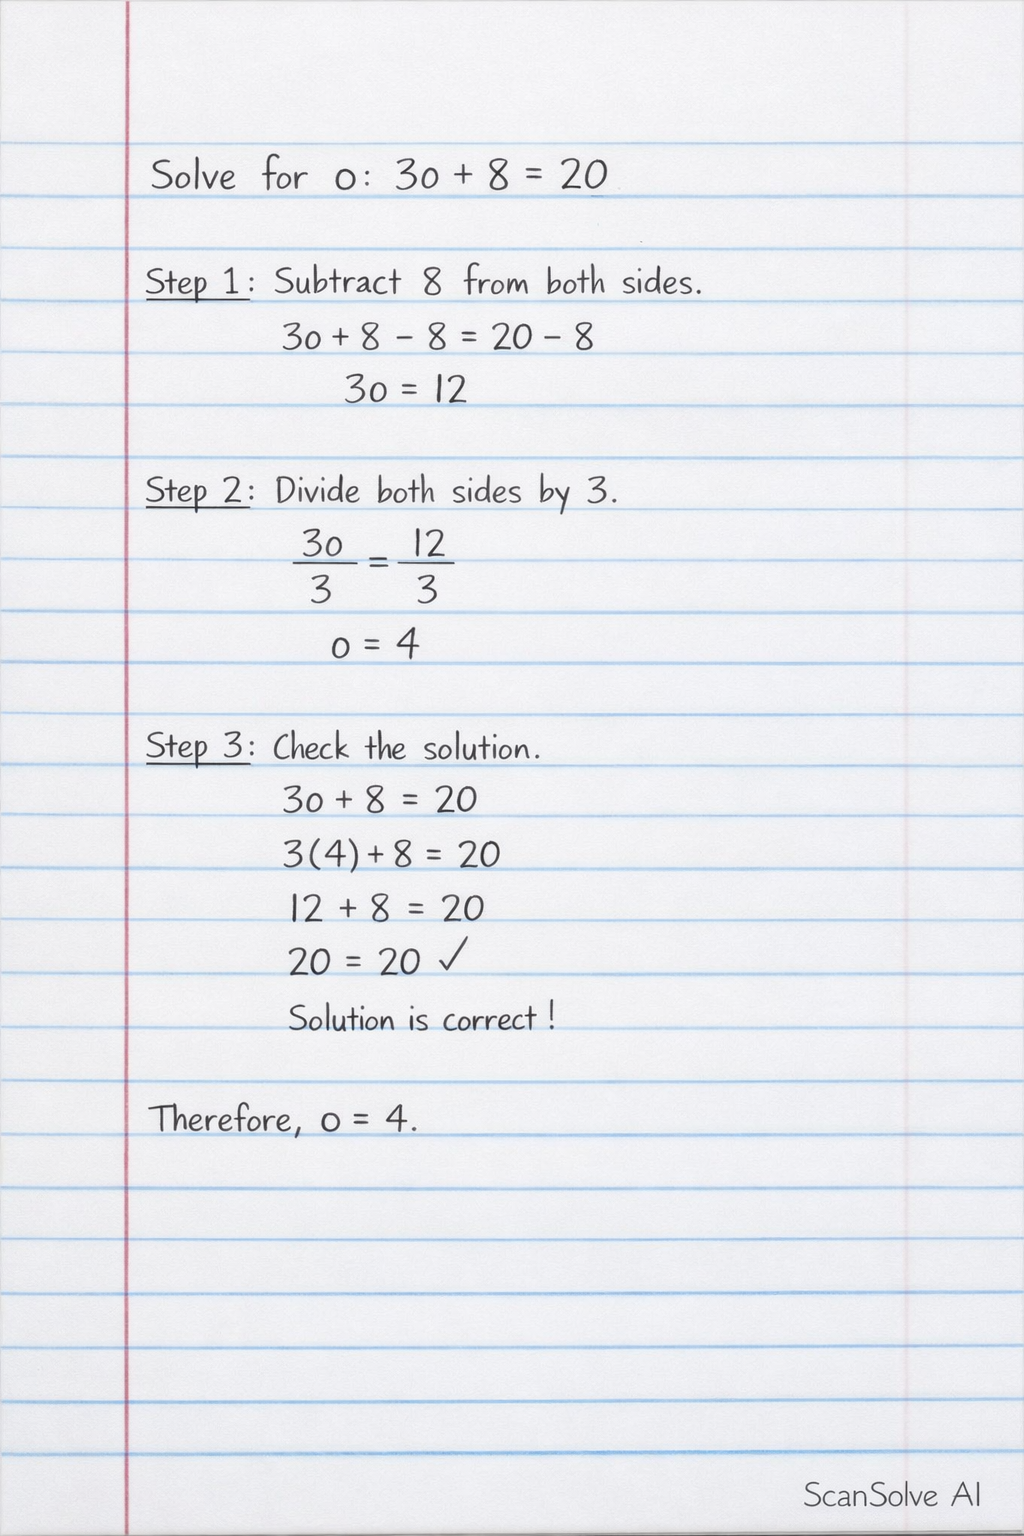 Solve for o: 3o + 8 = 20
Step 1: Subtract 8 from both sides.
3o + 8 - 8 = 20 - 8
3o = 12
Step 2: Divide both sides by 3.
3o/3 = 12/3
o = 4
Step 3: Check the solution.
3o + 8 = 20
3(4) + 8 = 20
12 + 8 = 20
20 = 20 ✓
Solution is correct!
Therefore, o = 4.
ScanSolve AI